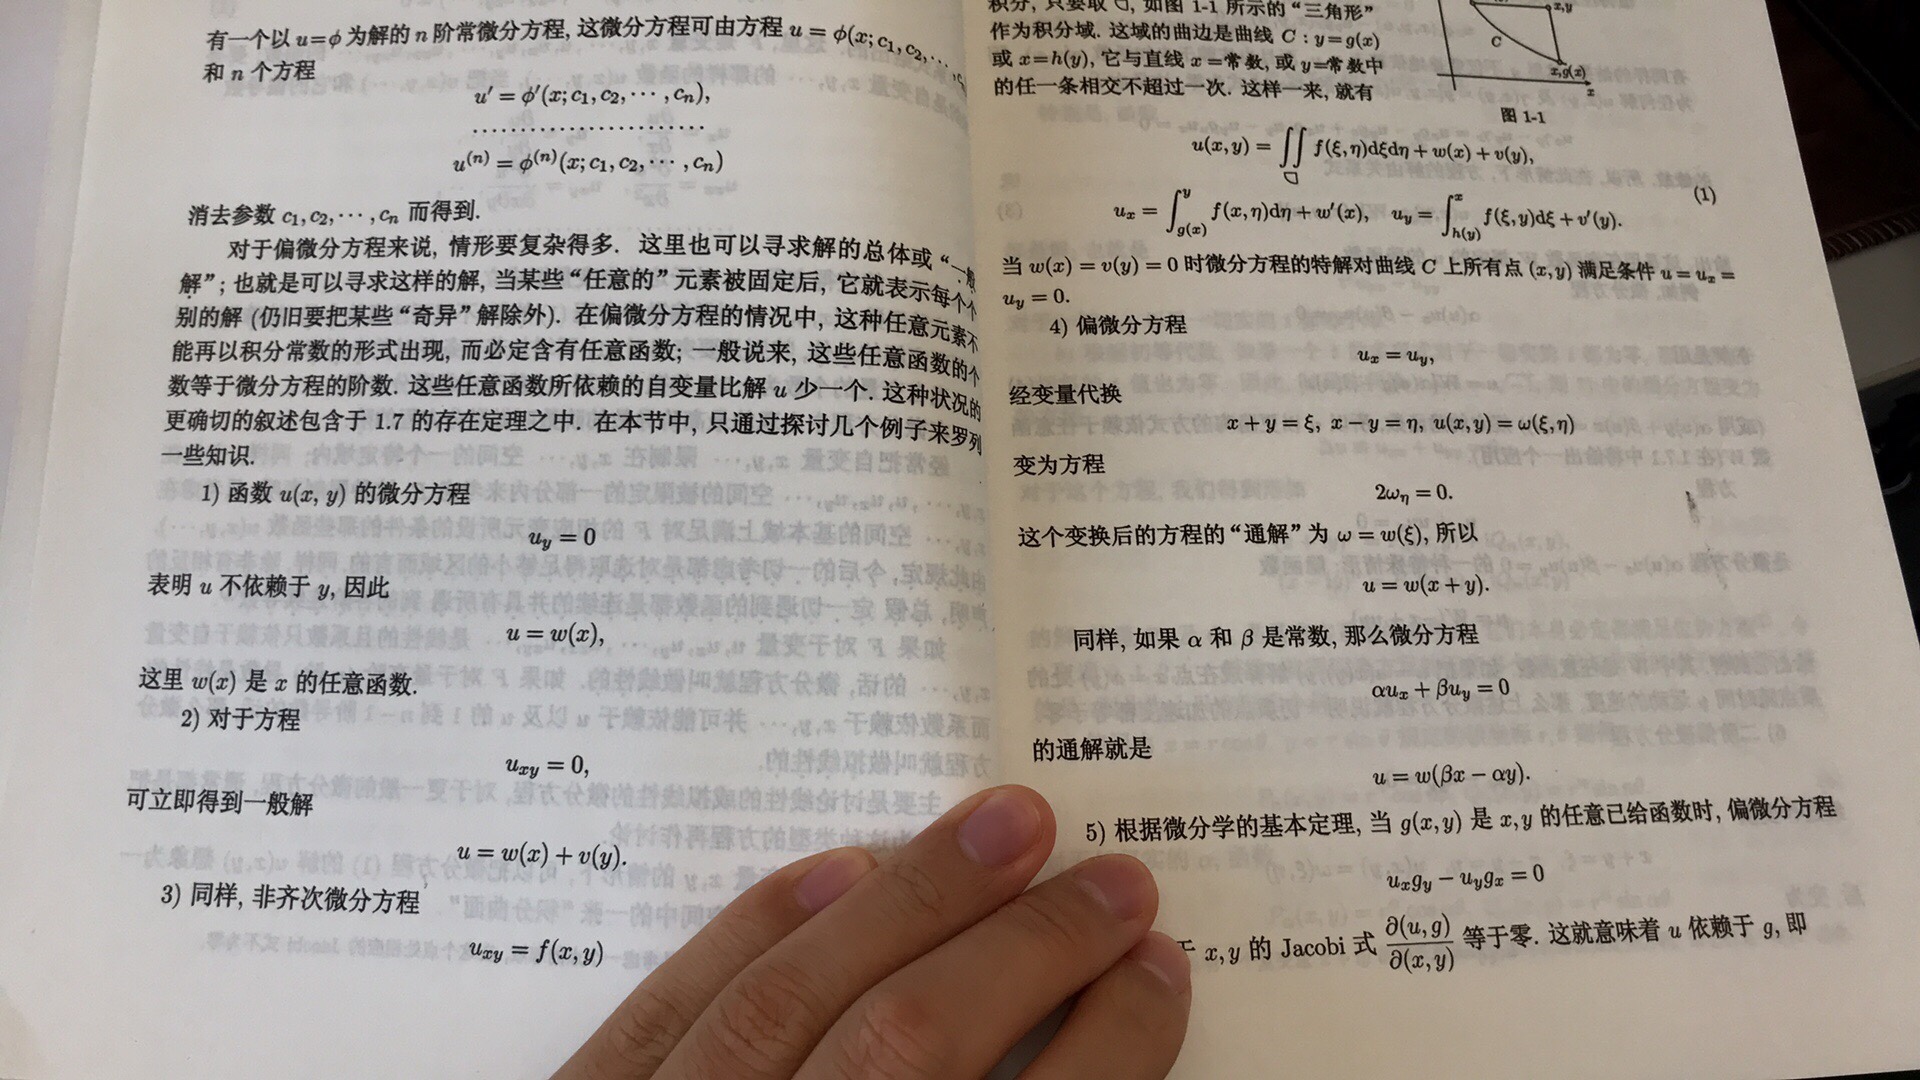 有一个以 u=ϕ 为解的 n 阶常微分方程, 这微分方程可由方程 u = ϕ(x; c₁, c₂, ⋯ ,
和 n 个方程
u′ = ϕ′(x; c₁, c₂, ⋯ , cₙ),
························
u⁽ⁿ⁾ = ϕ⁽ⁿ⁾(x; c₁, c₂, ⋯ , cₙ)
消去参数 c₁, c₂, ⋯ , cₙ 而得到.
对于偏微分方程来说, 情形要复杂得多. 这里也可以寻求解的总体或 “一般
解”; 也就是可以寻求这样的解, 当某些 “任意的” 元素被固定后, 它就表示每个个
别的解 (仍旧要把某些 “奇异” 解除外). 在偏微分方程的情况中, 这种任意元素不
能再以积分常数的形式出现, 而必定含有任意函数; 一般说来, 这些任意函数的个
数等于微分方程的阶数. 这些任意函数所依赖的自变量比解 u 少一个. 这种状况的
更确切的叙述包含于 1.7 的存在定理之中. 在本节中, 只通过探讨几个例子来罗列
一些知识.
1) 函数 u(x, y) 的微分方程
u_y = 0
表明 u 不依赖于 y, 因此
u = w(x),
这里 w(x) 是 x 的任意函数.
2) 对于方程
u_xy = 0,
可立即得到一般解
u = w(x) + v(y).
3) 同样, 非齐次微分方程
u_xy = f(x, y)
积分, 只要取 ▽, 如图 1-1 所示的 “三角形”
作为积分域. 这域的曲边是曲线 C : y = g(x)
或 x = h(y), 它与直线 x = 常数, 或 y = 常数中
的任一条相交不超过一次. 这样一来, 就有
x,y
C
x,g(x)
x
图 1-1
u(x, y) = ∬_▽ f(ξ, η)dξdη + w(x) + v(y),
(1)
u_x = ∫_{g(x)}^{y} f(x, η)dη + w′(x), u_y = ∫_{h(y)}^{x} f(ξ, y)dξ + v′(y).
当 w(x) = v(y) = 0 时微分方程的特解对曲线 C 上所有点 (x, y) 满足条件 u = u_x =
u_y = 0.
4) 偏微分方程
u_x = u_y,
经变量代换
x + y = ξ, x − y = η, u(x, y) = ω(ξ, η)
变为方程
2ω_η = 0.
这个变换后的方程的 “通解” 为 ω = w(ξ), 所以
u = w(x + y).
同样, 如果 α 和 β 是常数, 那么微分方程
αu_x + βu_y = 0
的通解就是
u = w(βx − αy).
5) 根据微分学的基本定理, 当 g(x, y) 是 x, y 的任意已给函数时, 偏微分方程
u_x g_y − u_y g_x = 0
x, y 的 Jacobi 式 ∂(u, g)/∂(x, y) 等于零. 这就意味着 u 依赖于 g, 即